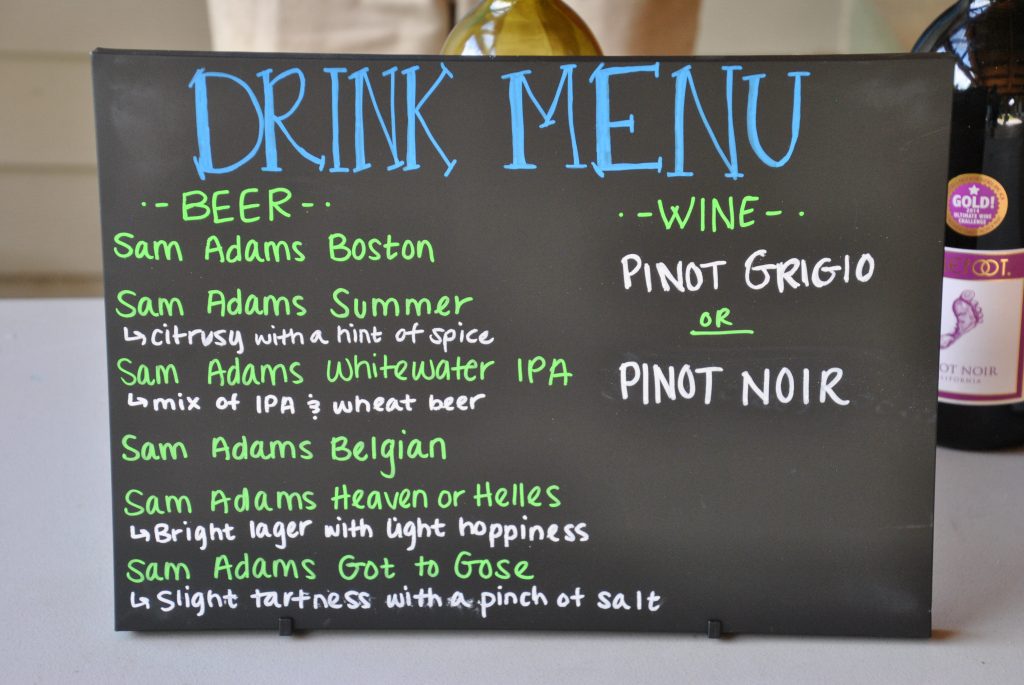 DRINK MENU
·-BEER-·
Sam Adams Boston
Sam Adams Summer
↳citrusy with a hint of spice
Sam Adams Whitewater IPA
↳mix of IPA & wheat beer
Sam Adams Belgian
Sam Adams Heaven or Helles
↳Bright lager with light hoppiness
Sam Adams Got to Gose
↳Slight tartness with a pinch of salt
·-WINE-·
PINOT GRIGIO
OR
PINOT NOIR
GOLD!
2014
ULTIMATE WINE
CHALLENGE
FOOT.
OT NOIR
IFORNIA